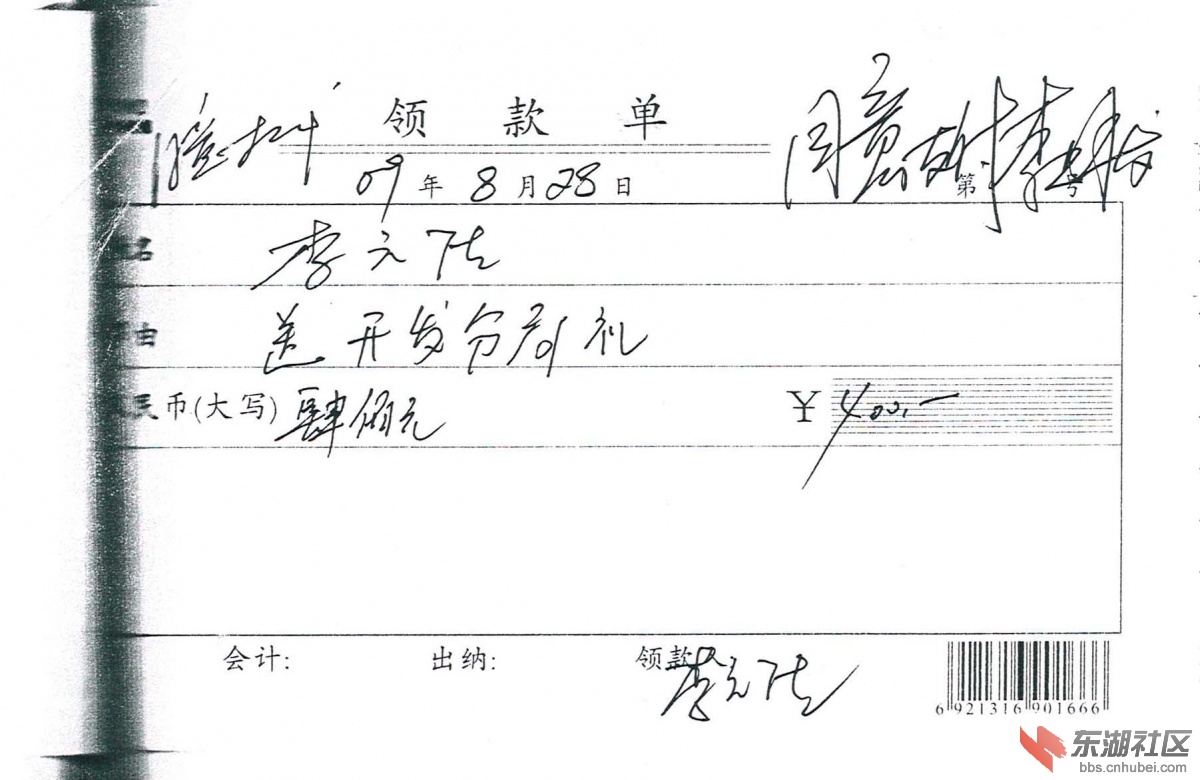 领款单
09年8月28日
第 号
名 李元法
由 送开发公司礼
民币(大写) 肆佰元 ¥ 400.—
会计: 出纳: 领款 李元法
6 921316 901666
东湖社区
bbs.cnhubei.com